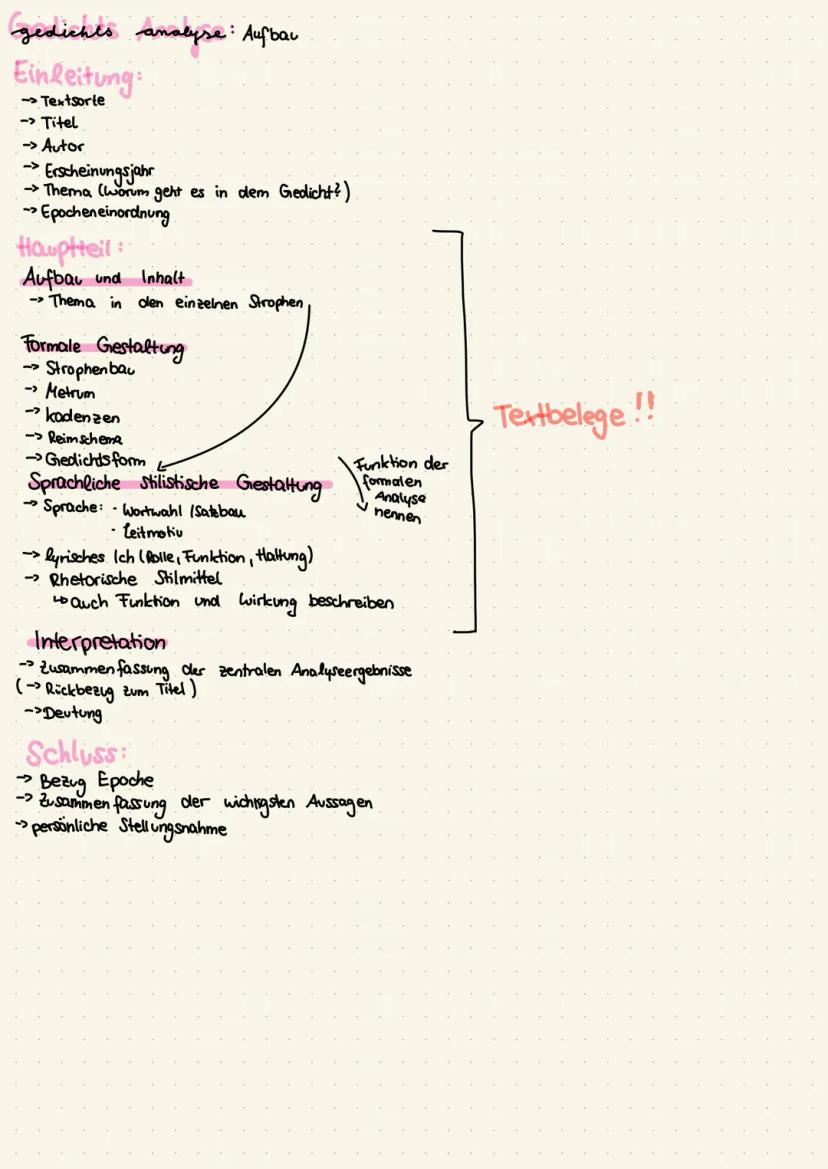 gedichts analyse: Aufbau
Einleitung:
-> Textsorte
-> Titel
-> Autor
-> Erscheinungsjahr
-> Thema (worum geht es in dem Gedicht?)
-> Epocheneinordnung
Hauptteil:
Aufbau und Inhalt
-> Thema in den einzelnen Strophen
Formale Gestaltung
-> Strophenbau
-> Metrum
-> Kadenzen
-> Reimschema
-> Gedichtsform
Sprachliche stilistische Gestaltung
-> Sprache: · Wortwahl /Satzbau
· Leitmotiv
-> lyrisches Ich (Rolle, Funktion, Haltung)
-> Rhetorische Stilmittel
↳ auch Funktion und Wirkung beschreiben
Funktion der
formalen
Analyse
nennen
Textbelege !!
Interpretation
-> Zusammenfassung der zentralen Analyseergebnisse
(-> Rückbezug zum Titel)
-> Deutung
Schluss:
-> Bezug Epoche
-> Zusammenfassung der wichtigsten Aussagen
-> persönliche Stellungsnahme